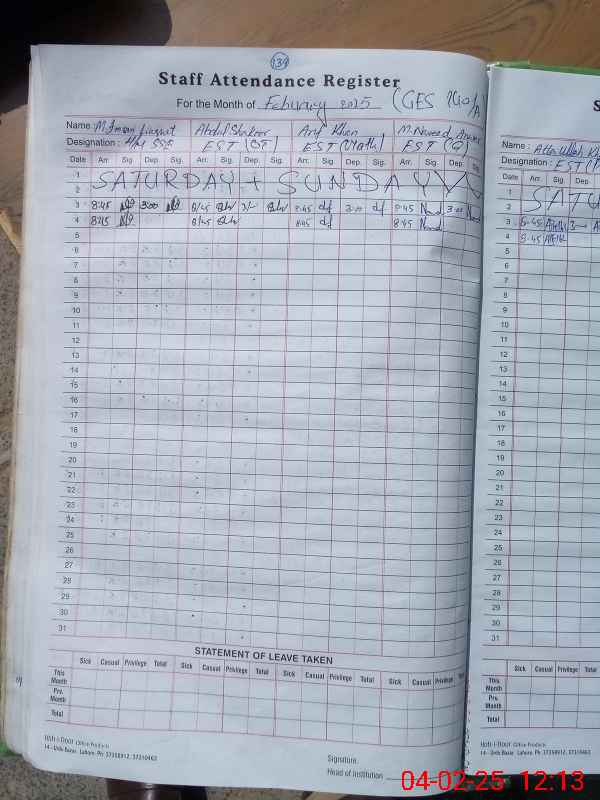 134
Staff Attendance Register
For the Month of February 2025 (GES
Name M. Imran Liaqat Abdul Shakoor Arif Khan M. Naveed
Designation: SSE EST EST (Math) EST
Date Arr. Sig. Dep. Sig. Arr. Sig. Dep. Sig. Arr. Sig. Dep. Sig. Arr. Sig. Dep. Sig.
1
2
SATURDAY + SUNDAY
3 8:45 3:00 8:45 3/- 8:45 3:00 8:45 3:00
4 8:45 8:45 8:45 8:45
5
6
7
8
9
10
11
12
13
14
15
16
17
18
19
20
21
22
23
24
25
26
27
28
29
30
31
STATEMENT OF LEAVE TAKEN
Sick Casual Privilege Total Sick Casual Privilege Total Sick Casual Privilege Total Sick Casual Privilege Total
This Month
Pre. Month
Total
Office Products
14 - Urdu Bazar, Lahore. Ph: 37358912, 37310463
Signature.
Head of Institution
S
For
Name: Atta Ullah
Designation: EST
Date Arr. Sig. Dep.
1
2
SATU
3 8:45 3
4 8:45
5
6
7
8
9
10
11
12
13
14
15
16
17
18
19
20
21
22
23
24
25
26
27
28
29
30
31
Sick Casual Privilege Total
This Month
Pre. Month
Total
Office Products
14 - Urdu Bazar, Lahore. Ph: 37358912, 37310463
04-02-25 12:13